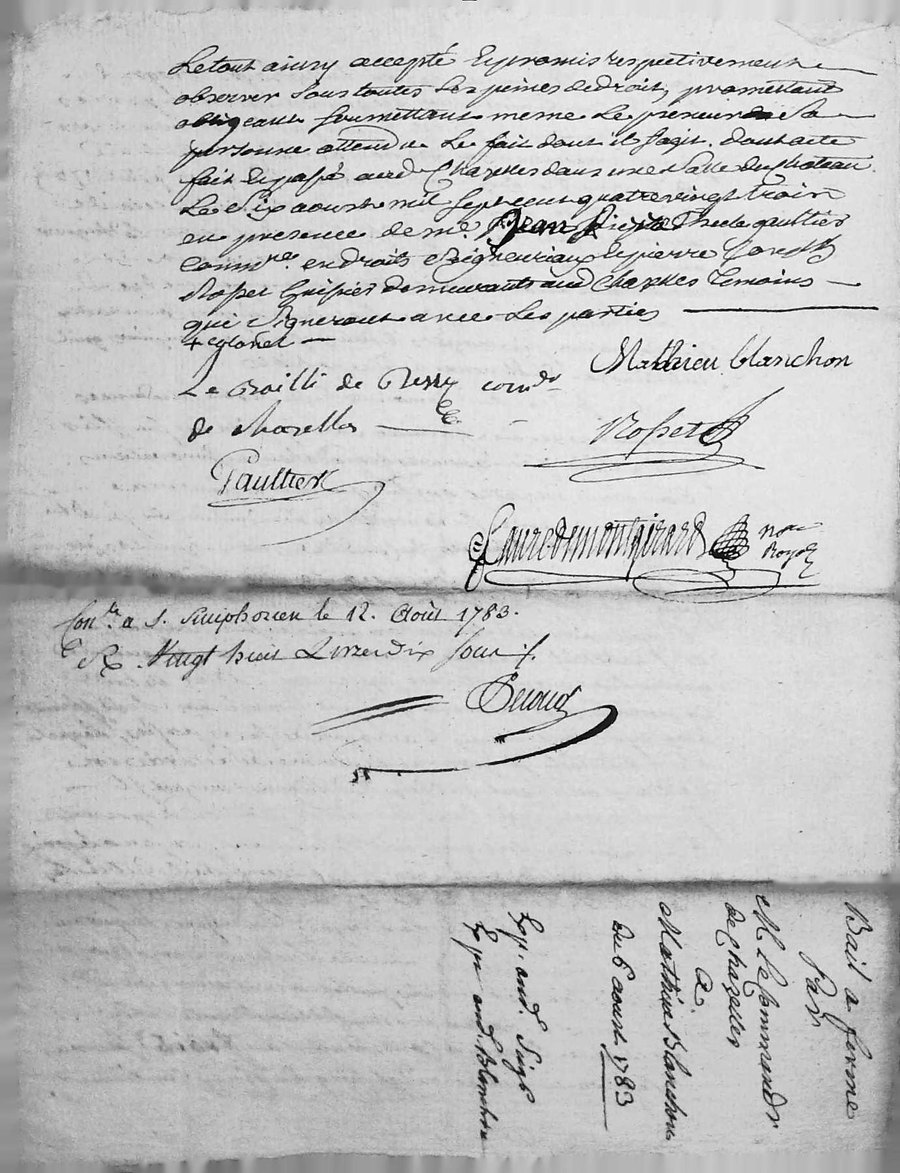 Le tout ainsy accepté et promis respectivement
observer sous toutes les peines de droit, promettant
obligeant soumettant meme le preneur sa
personne attendu le fait dont il s'agit. dont acte
fait et passé aud Chazelles dans une salle du chateau
Le Six aoust mil sept cent quatre vingt trois
en presence de me. Jean gaultier
Comm.re en droits seigneuriaux et pierre Joseph
Rosset demeurants aud Chazelles temoins
qui signeront avec les parties
Mathieu blanchon
Le Bailli de comdr
de chazelles
Rosset
Gaultier
not.re
Royal
Con.lé a S. Simphorien le 12. Août 1783.
R. Vingt huit Livres dix sous
Bail a ferme
par
M. Le Commandr
de Chazelles
a
Mathieu Blanchon
du 6 aoust 1783
Exp. aud. Sieur
Exp. aud. Blanchon